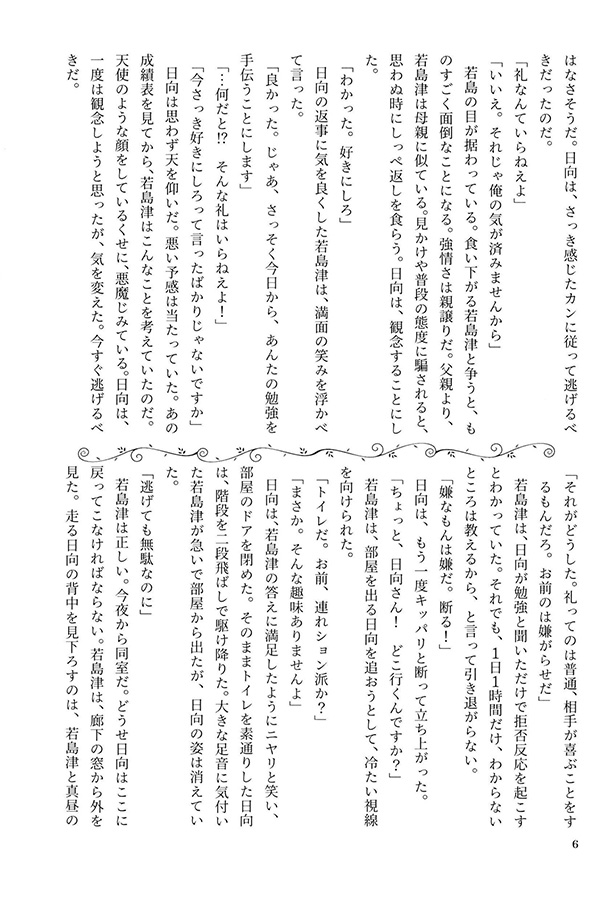 はなさそうだ。日向は、さっき感じたカンに従って逃げるべ
きだったのだ。
「礼なんていらねえよ」
「いいえ。それじゃ俺の気が済みませんから」
若島の目が据わっている。食い下がる若島津と争うと、も
のすごく面倒なことになる。強情さは親譲りだ。父親より、
若島津は母親に似ている。見かけや普段の態度に騙されると、
思わぬ時にしっぺ返しを食らう。日向は、観念することにし
た。
「わかった。好きにしろ」
日向の返事に気を良くした若島津は、満面の笑みを浮かべ
て言った。
「良かった。じゃあ、さっそく今日から、あんたの勉強を
手伝うことにします」
「…何だと!?　そんな礼はいらねえよ！」
「今さっき好きにしろって言ったばかりじゃないですか」
日向は思わず天を仰いだ。悪い予感は当たっていた。あの
成績表を見てから、若島津はこんなことを考えていたのだ。
天使のような顔をしているくせに、悪魔じみている。日向は、
一度は観念しようと思ったが、気を変えた。今すぐ逃げるべ
きだ。
「それがどうした。礼ってのは普通、相手が喜ぶことをす
るもんだろ。お前のは嫌がらせだ」
若島津は、日向が勉強と聞いただけで拒否反応を起こす
とわかっていた。それでも、1日1時間だけ、わからない
ところは教えるから、と言って引き退がらない。
「嫌なもんは嫌だ。断る！」
日向は、もう一度キッパリと断って立ち上がった。
「ちょっと、日向さん！　どこ行くんですか？」
若島津は、部屋を出る日向を追おうとして、冷たい視線
を向けられた。
「トイレだ。お前、連れション派か？」
「まさか。そんな趣味ありませんよ」
日向は、若島津の答えに満足したようにニヤリと笑い、
部屋のドアを閉めた。そのままトイレを素通りした日向
は、階段を二段飛ばしで駆け降りた。大きな足音に気付い
た若島津が急いで部屋から出たが、日向の姿は消えてい
た。
「逃げても無駄なのに」
若島津は正しい。今夜から同室だ。どうせ日向はここに
戻ってこなければならない。若島津は、廊下の窓から外を
見た。走る日向の背中を見下ろすのは、若島津と真昼の
6